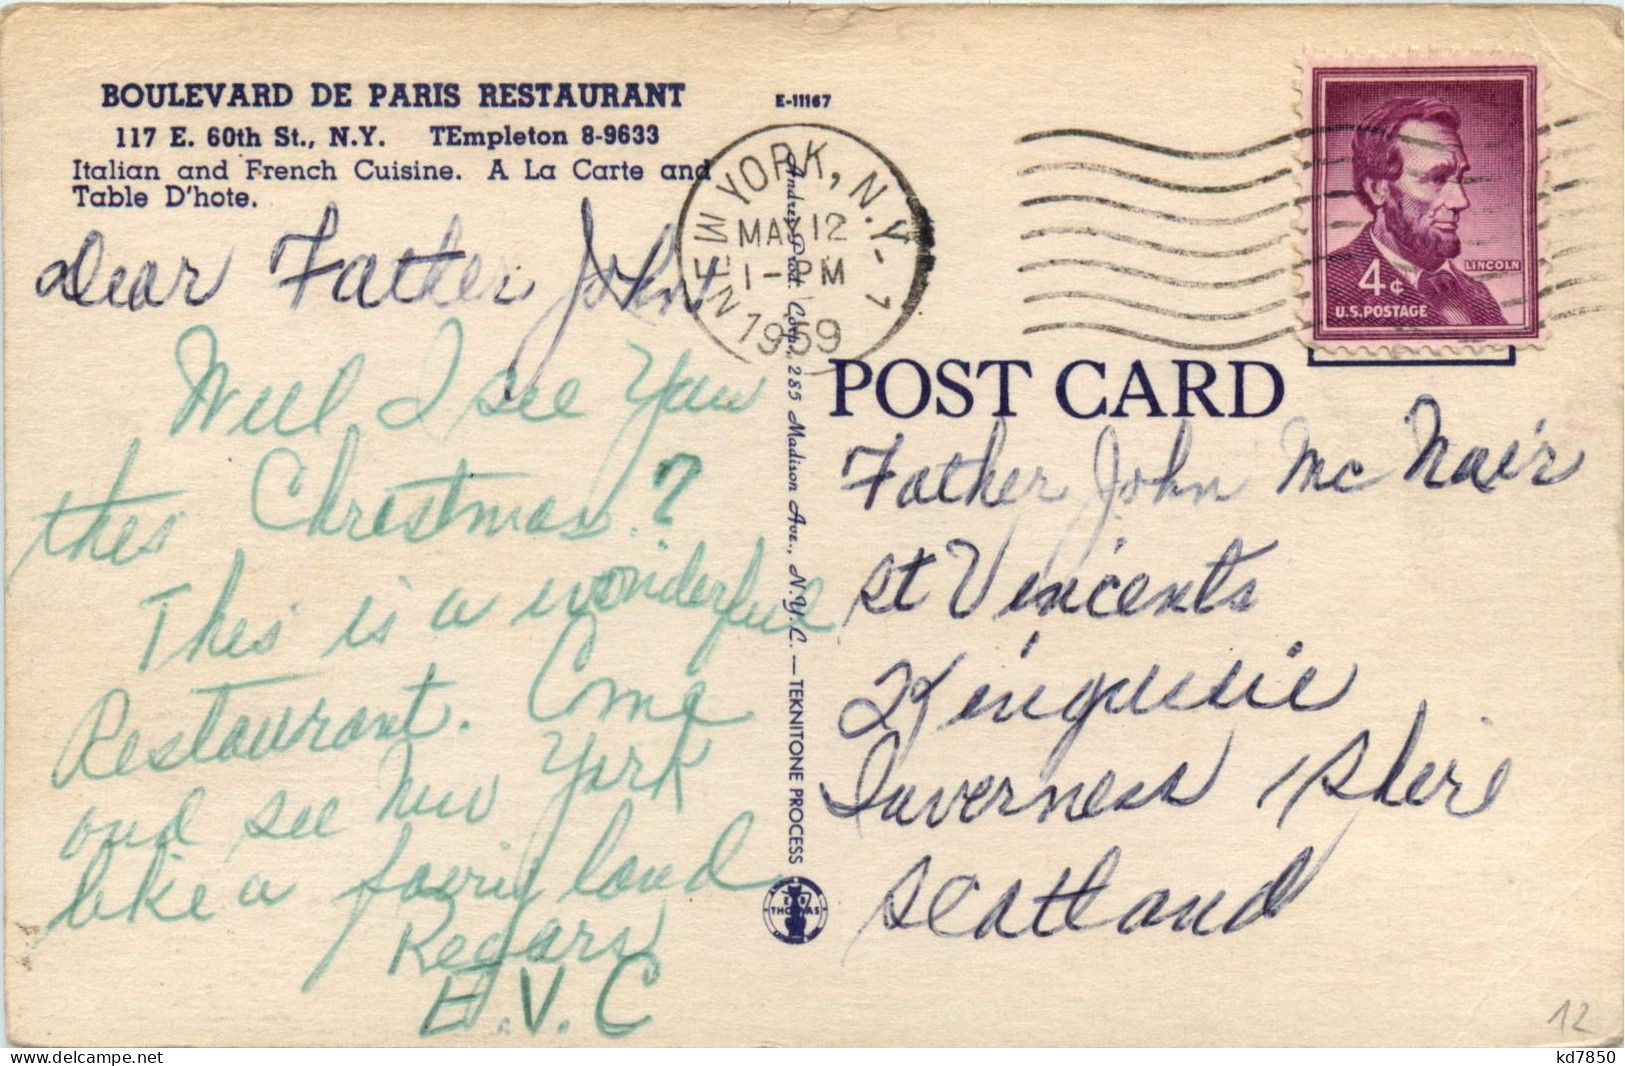 BOULEVARD DE PARIS RESTAURANT
117 E. 60th St., N.Y. TEmpleton 8-9633
Italian and French Cuisine. A La Carte and
Table D'hote.
E-11167
NEW YORK, N.Y. 1
MAY 12
1-PM
1959
4¢
LINCOLN
U.S. POSTAGE
POST CARD
Dear Father John
Will I see You
this Christmas?
This is a wonderful
Restaurant. Come
and see New York
like a fairy land
Regards
E.V.C
Father John Mc Nair
St Vincents
Kingussie
Inverness Shire
Scotland
Andres Prod. Corp., 285 Madison Ave., N.Y.C. — TEKNITONE PROCESS
THOMAS
12
www.delcampe.net
kd7850